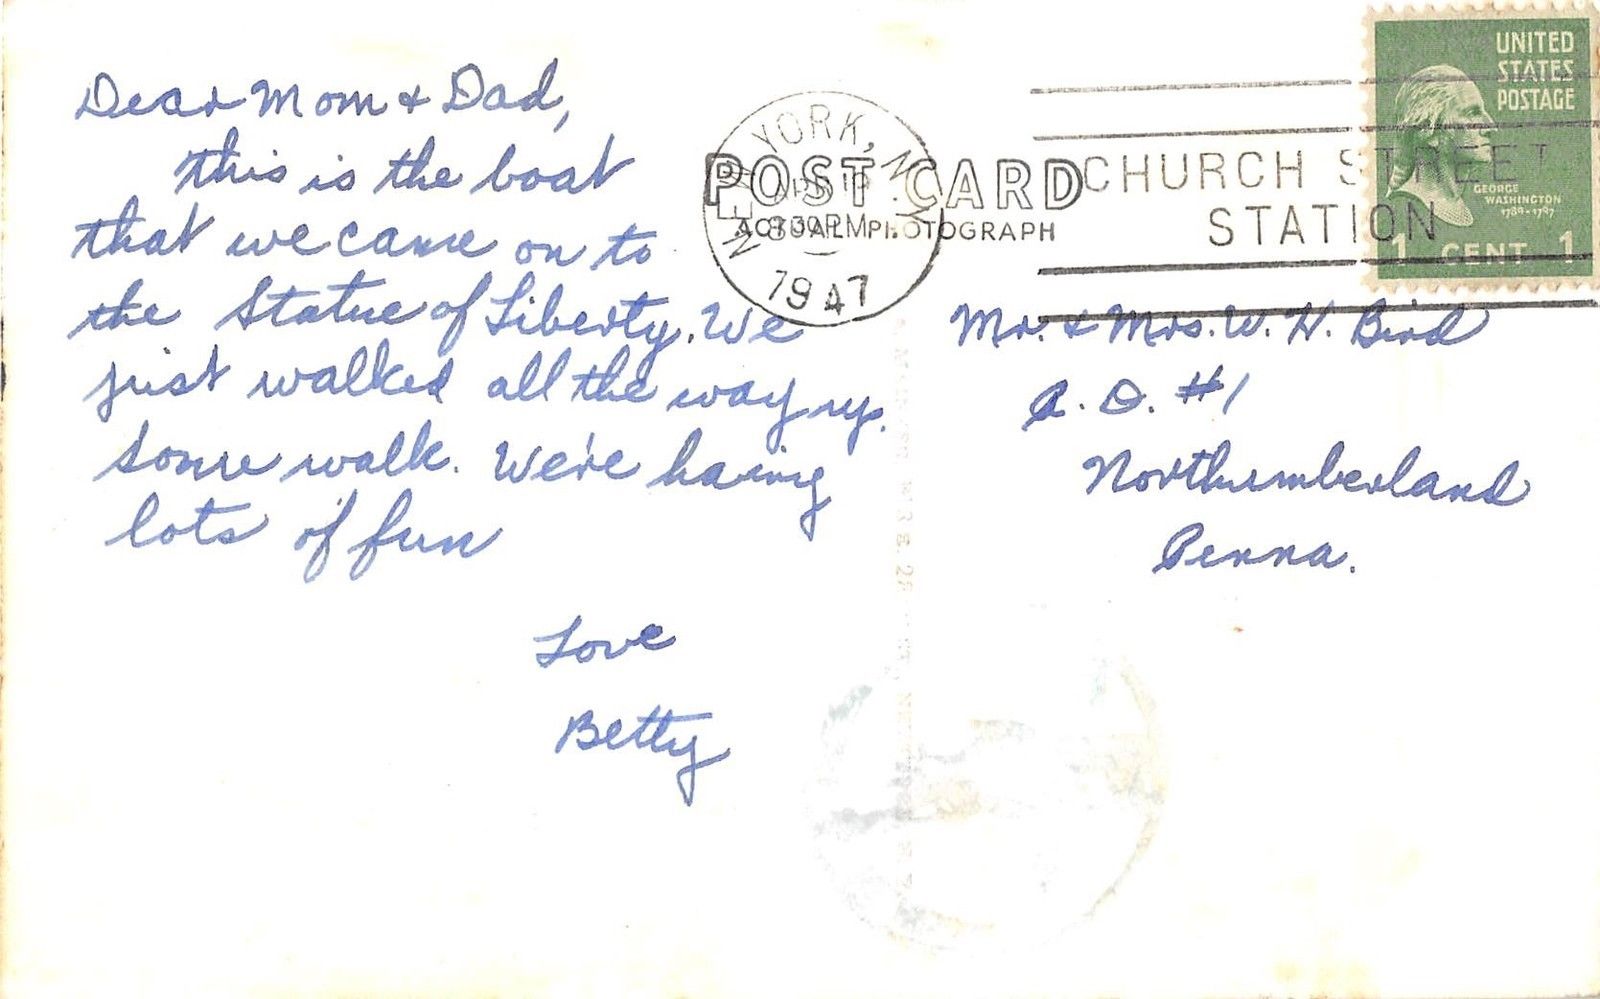 Dear Mom & Dad,
this is the boat
that we came on to
the Statue of Liberty. We
just walked all the way up.
Some walk. We're having
lots of fun
Love
Betty
POST CARD
ACTUAL PHOTOGRAPH
NEW YORK, N.Y.
830 PM
1947
CHURCH STREET
STATION
UNITED
STATES
POSTAGE
GEORGE
WASHINGTON
1789-1797
1 CENT 1
Mr. & Mrs. W. H. Bird
R. D. #1
Northumberland
Penna.